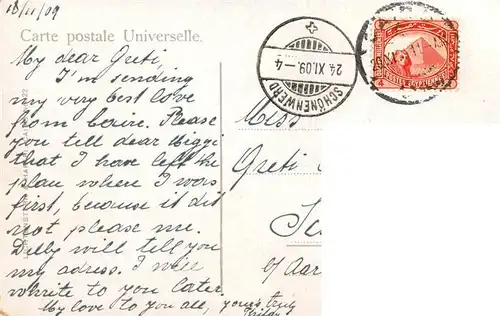 18/11/09
Carte postale Universelle.
My dear Greti,
I'm sending
my very best love
from Cairo. Please
you tell dear
that I have left the
plan where I was
first, because it did
not please me.
Dilly will tell you
my adress. I will
whrite to you later.
My love to you all, yours truly
SCHÖNENWERD
24.XI.09.-4
POSTES EGYPTIENNES
Miss
Greti
c/ Aar